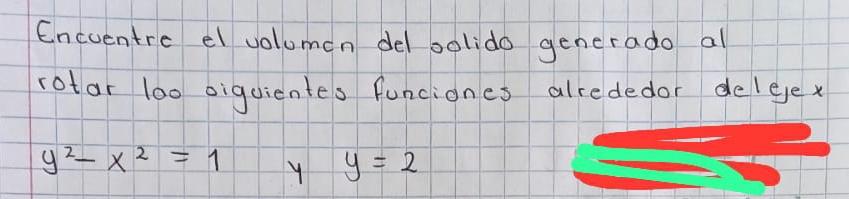 Encuentre el volumen del solido generado al
rotar las siguientes funciones alrededor del eje x
y² - x² = 1 y y = 2